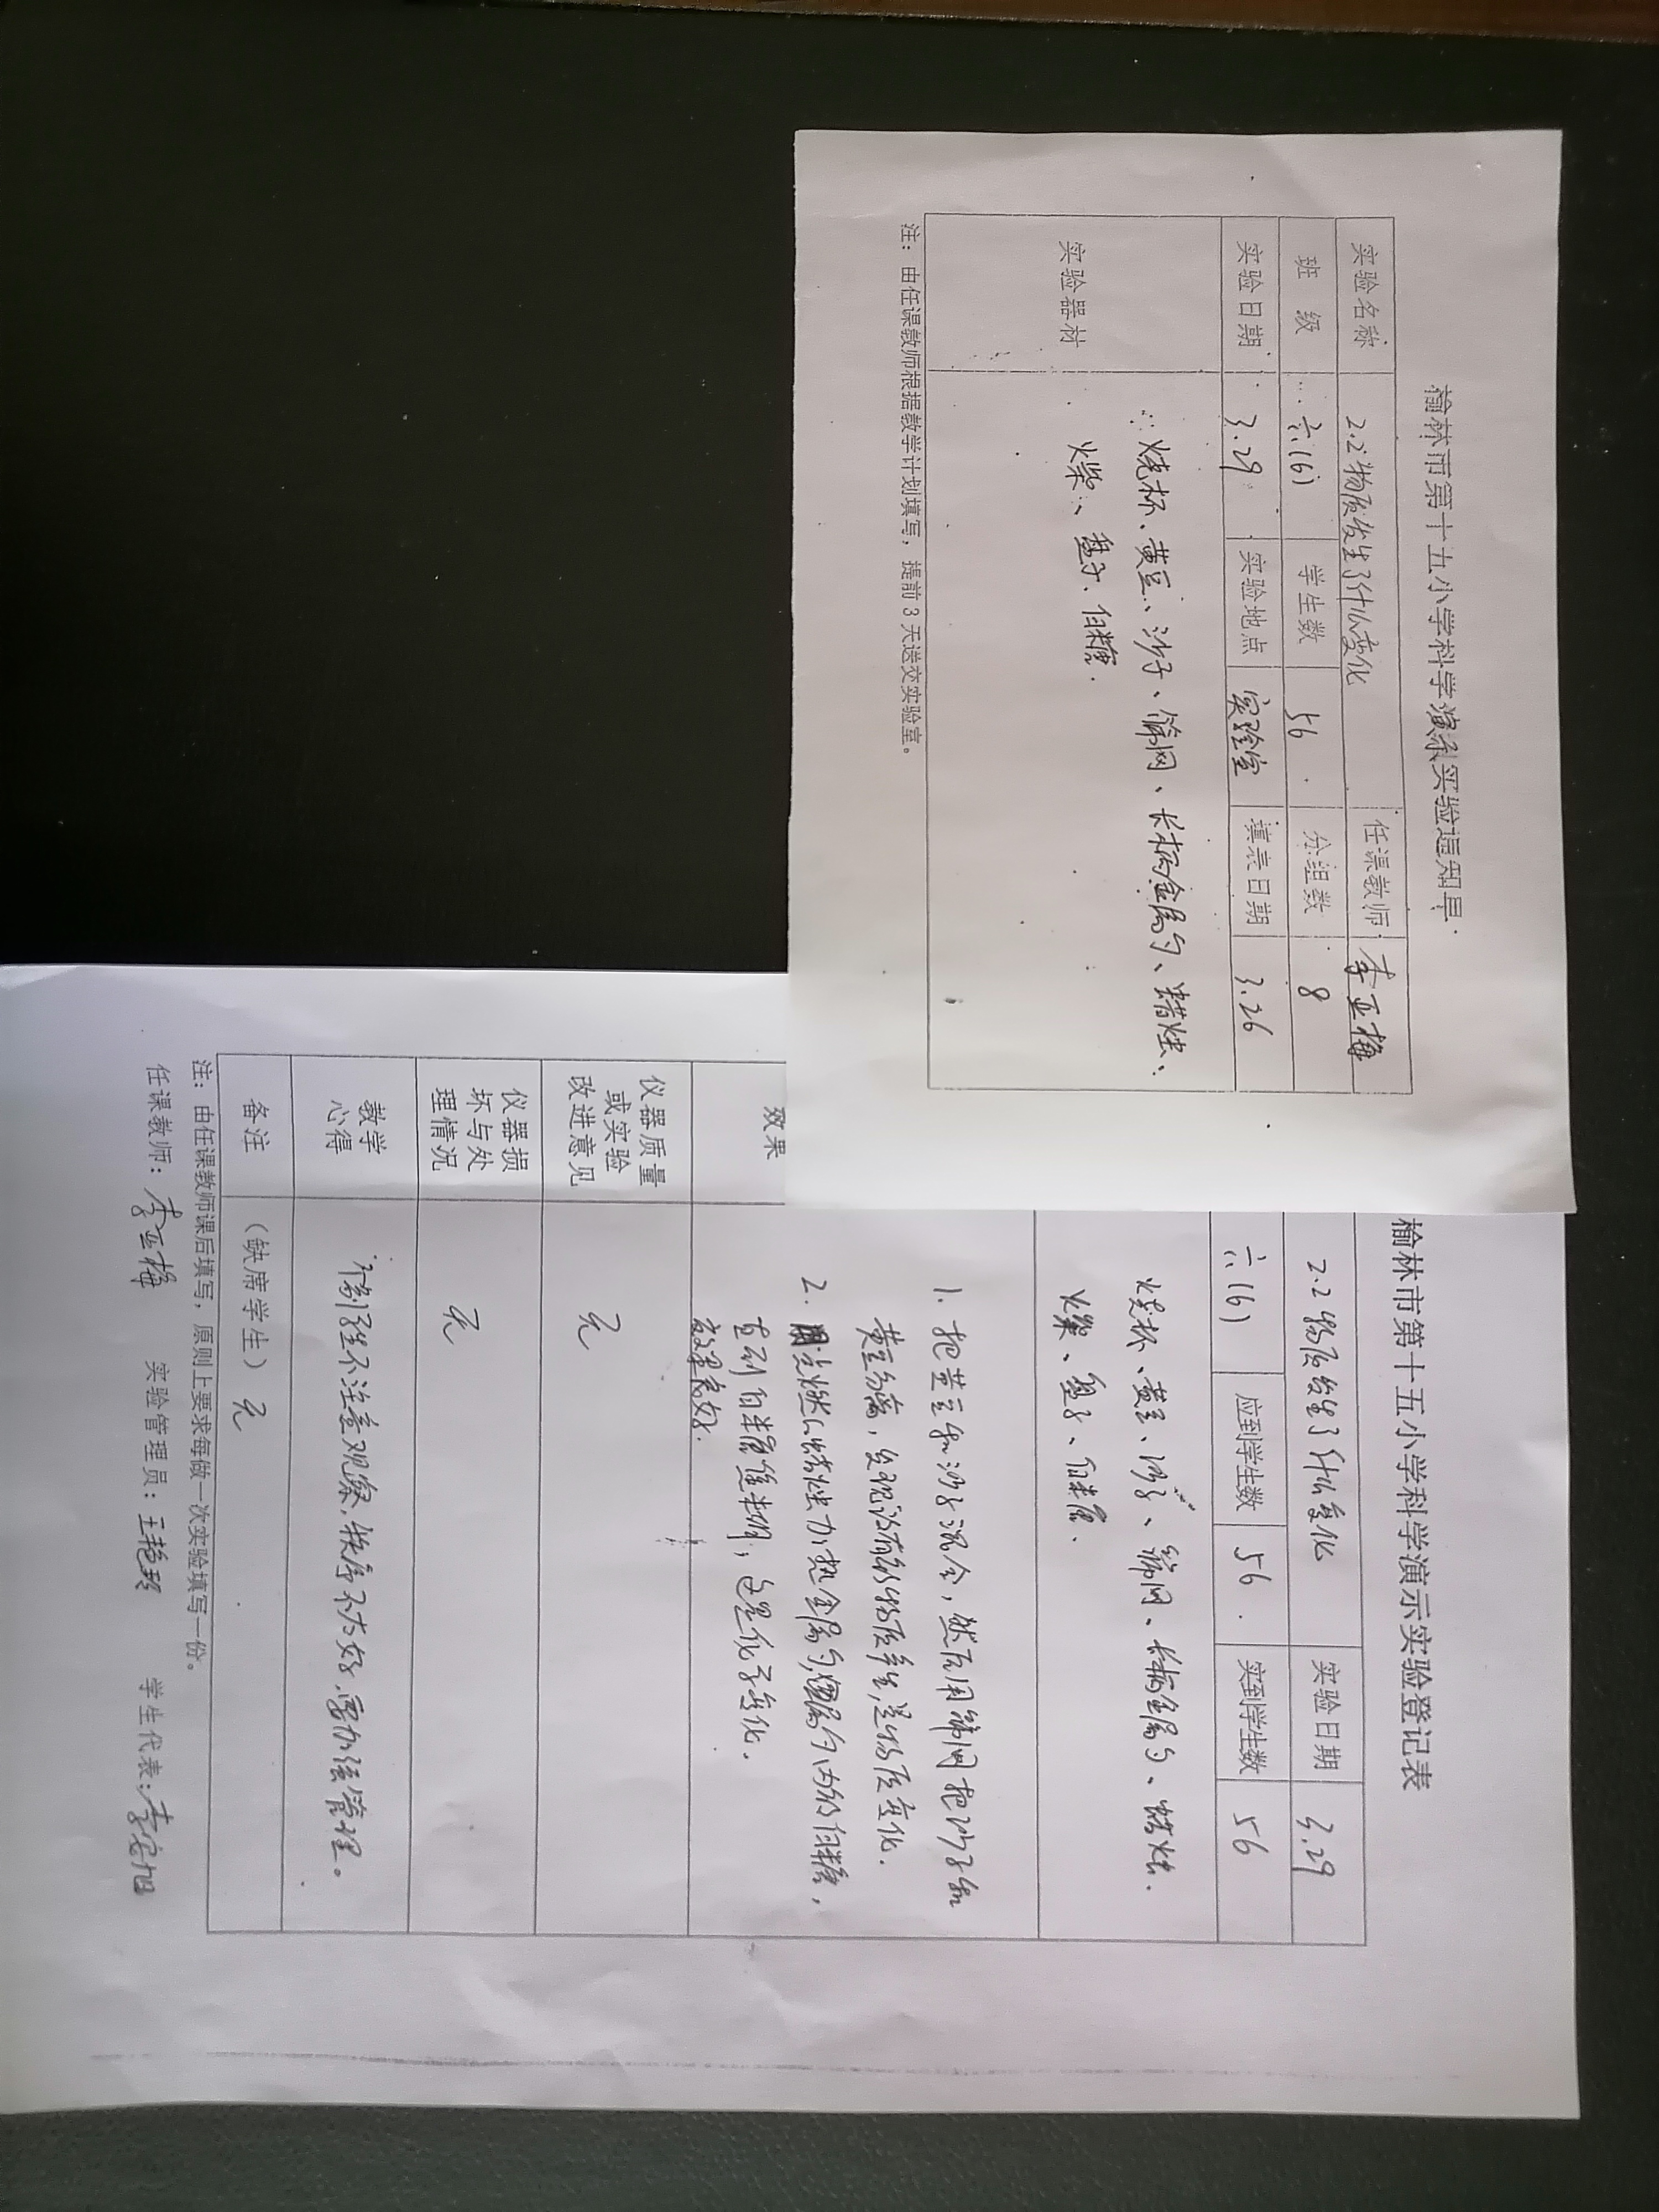 榆林市第十五小学科学演示实验通知单
实验名称 2.2物质发生了什么变化 任课教师 李亚梅
班 级 六.(6) 学生数 56 分组数 8
实验日期 3.29 实验地点 实验室 填表日期 3.26
实验器材 烧杯、黄豆、沙子、筛网、长柄金属勺、蜡烛、
火柴、盘子、白糖.
注：由任课教师根据教学计划填写，提前 3 天送交实验室。
榆林市第十五小学科学演示实验登记表
2.2物质发生了什么变化 实验日期 3.29
六.(6) 应到学生数 56 实到学生数 56
烧杯、黄豆、沙子、筛网、长柄金属勺、蜡烛.
火柴、盘子、白糖.
效果
1. 把黄豆和沙子混合，然后用筛网把沙子和
黄豆分离，发现没有新物质产生,是物质变化.
2. 用点燃的蜡烛加热金属勺,金属勺内的白糖，
直到白糖焦糊，这是化学变化.
效果良好.
仪器质量
或实验
改进意见
无
仪器损
坏与处
理情况
无
教学
心得
个别学生不注意观察，秩序不太好，要加强管理。
备注 （缺席学生）无
注：由任课教师课后填写，原则上要求每做一次实验填写一份。
任课教师：李亚梅 实验管理员：王艳 学生代表：李安旭